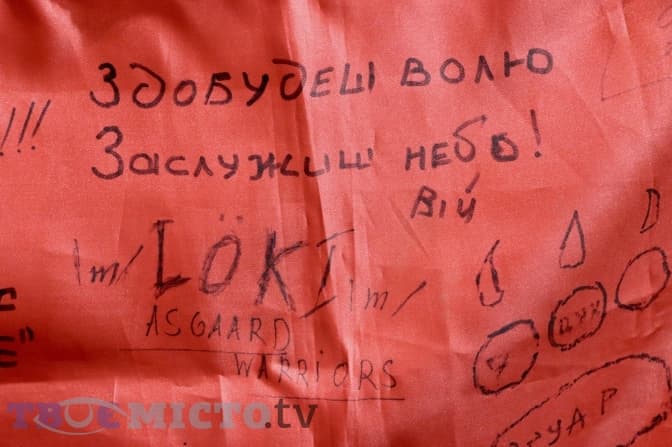 Здобудеш волю
!!!
Заслужиш небо!
Вій
\m/ LÖKI \m/
ASGAARD
WARRIORS
ДУХ
ТВОЄМІСТО.tv